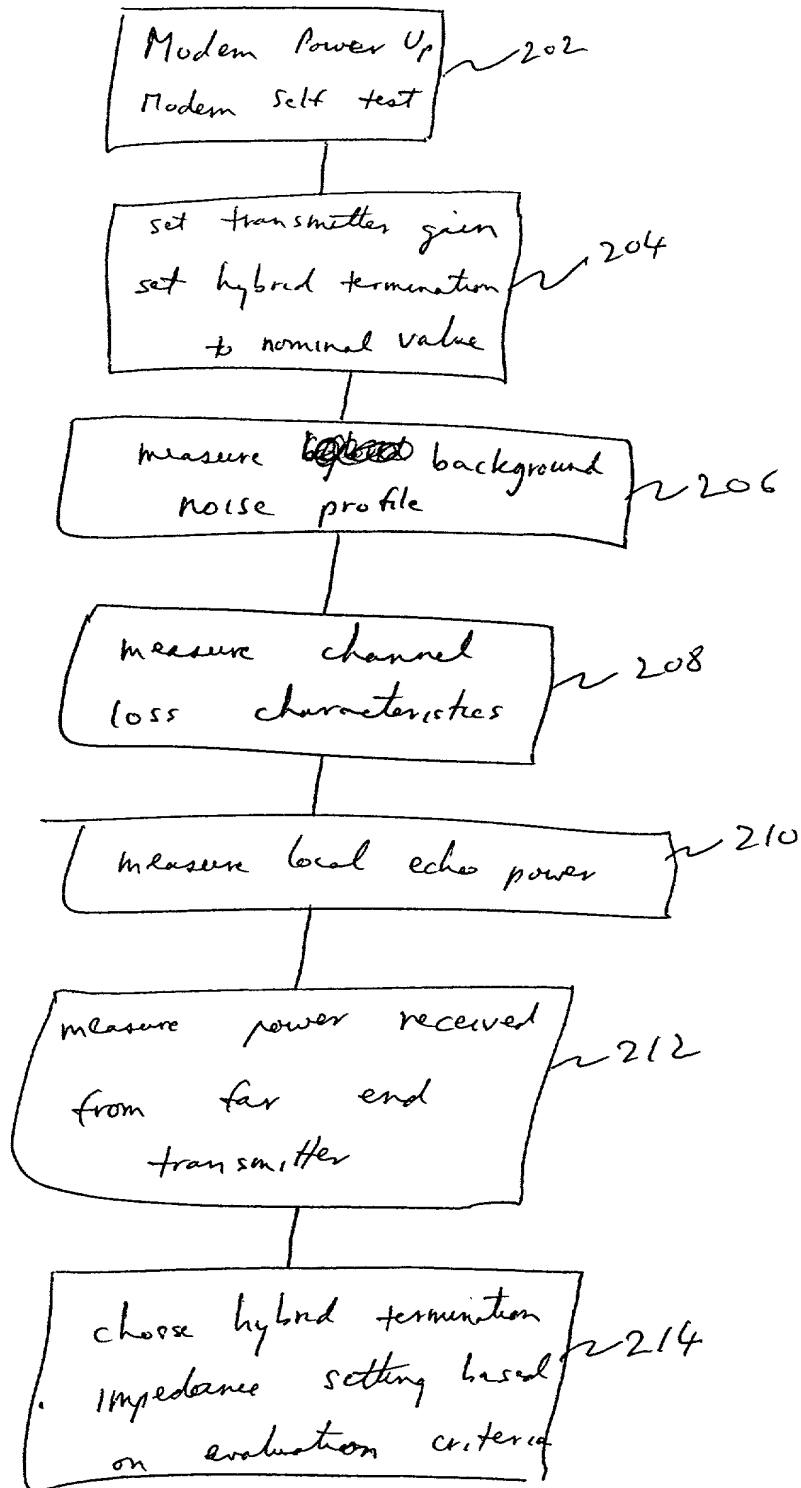 Modem Power Up
Modem Self test
202
set transmitter gain
set hybrid termination
to nominal value
204
measure background
noise profile
206
measure channel
loss characteristics
208
measure local echo power
210
measure power received
from far end
transmitter
212
choose hybrid termination
impedance setting based
on evaluation criteria
214